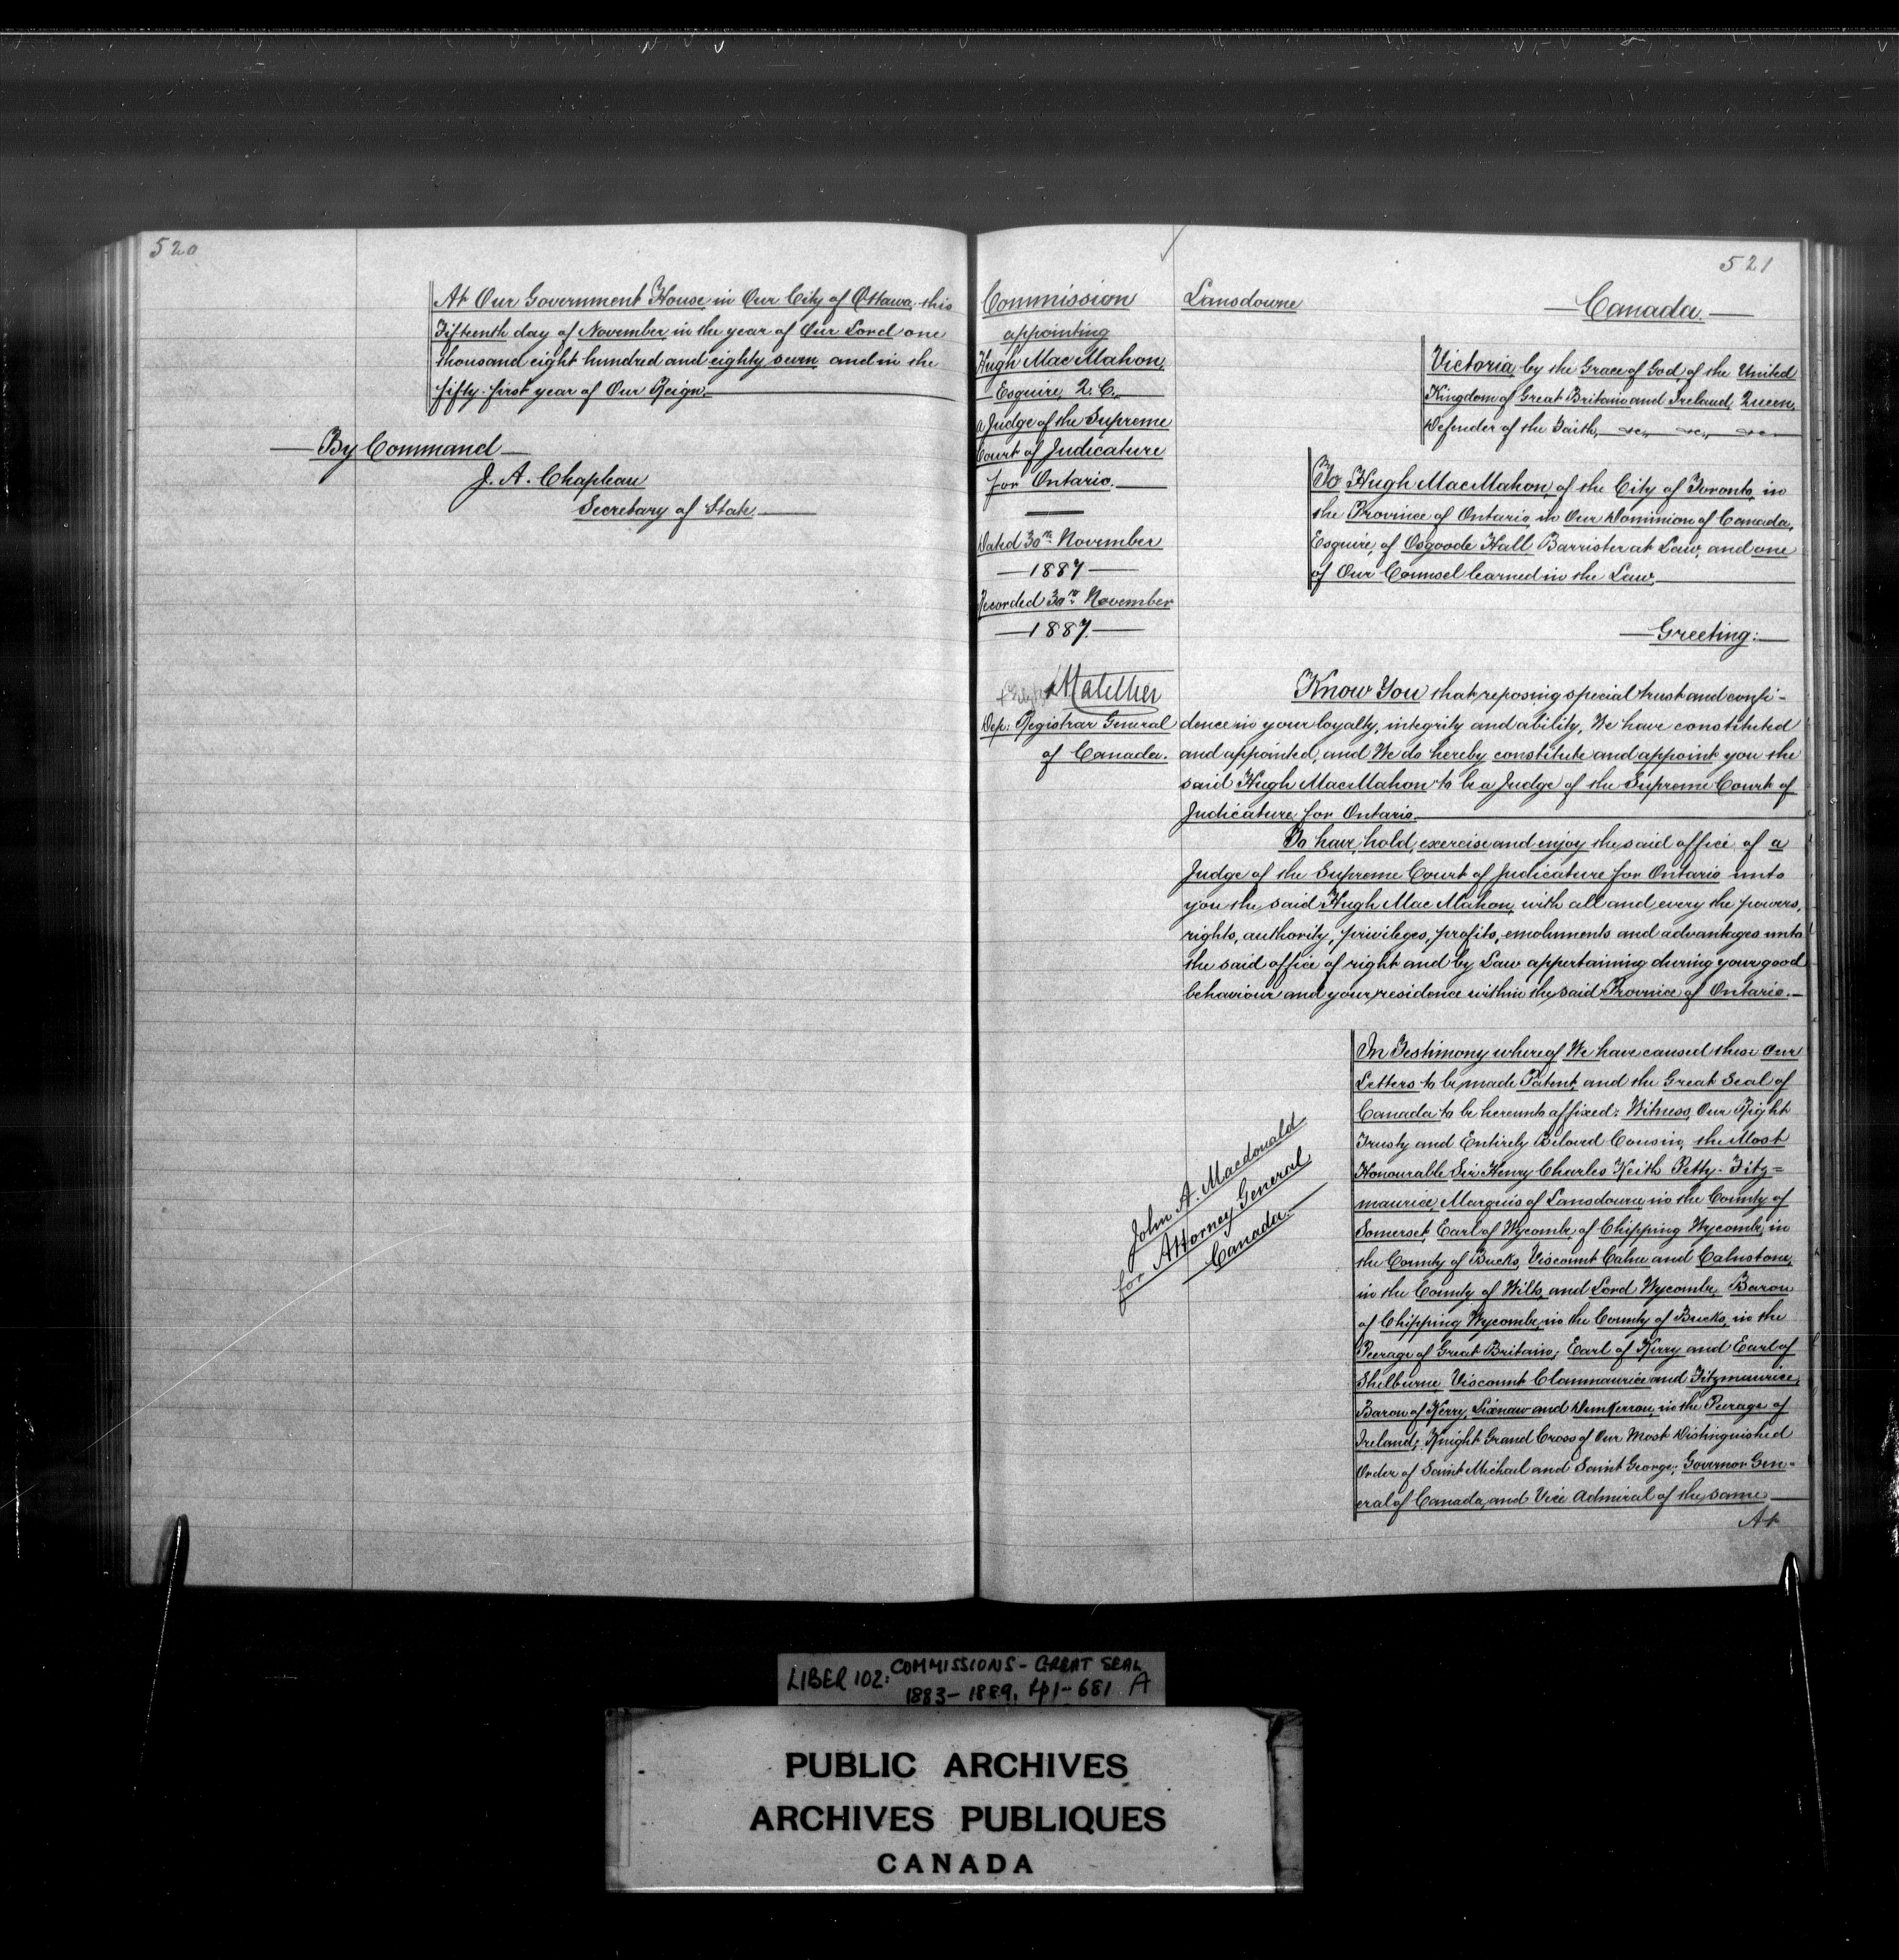 520
At Our Government House in Our City of Ottawa, this
Fifteenth day of November in the year of Our Lord one
thousand eight hundred and eighty seven and in the
fifty-first year of Our Reign.
By Command
J. A. Chapleau
Secretary of State.
521
Commission
appointing
Hugh MacMahon,
Esquire, Q.C.,
a Judge of the Supreme
Court of Judicature
for Ontario.
Dated 30th November
1887
Recorded 30th November
1887.
Dep: Registrar General
of Canada.
Lansdowne
Canada.
Victoria, by the Grace of God, of the United
Kingdom of Great Britain and Ireland, Queen,
Defender of the Faith, &c., &c., &c.
To Hugh MacMahon, of the City of Toronto, in
the Province of Ontario, in Our Dominion of Canada,
Esquire, of Osgoode Hall Barrister at Law, and one
of Our Counsel learned in the Law,
Greeting:
Know You that reposing special trust and confi-
dence in your loyalty, integrity and ability, We have constituted
and appointed, and We do hereby constitute and appoint you the
said Hugh MacMahon to be a Judge of the Supreme Court of
Judicature for Ontario.
To have, hold, exercise and enjoy the said office of a
Judge of the Supreme Court of Judicature for Ontario unto
you the said Hugh MacMahon, with all and every the powers,
rights, authority, privileges, profits, emoluments and advantages unto
the said office of right and by Law appertaining during your good
behaviour and your residence within the said Province of Ontario.
In Testimony whereof We have caused these Our
Letters to be made Patent, and the Great Seal of
Canada to be hereunto affixed: Witness, Our Right
Trusty and Entirely Beloved Cousin, the Most
Honourable Sir Henry Charles Keith Petty-Fitz=
maurice, Marquis of Lansdowne, in the County of
Somerset, Earl of Wycombe, of Chipping Wycombe, in
the County of Bucks, Viscount Calne and Calnstone,
in the County of Wilts, and Lord Wycombe, Baron
of Chipping Wycombe, in the County of Bucks, in the
Peerage of Great Britain; Earl of Kerry and Earl of
Shelburne, Viscount Clanmaurice and Fitzmaurice,
Baron of Kerry, Lixnaw and Dunkerron, in the Peerage of
Ireland; Knight Grand Cross of Our Most Distinguished
Order of Saint Michael and Saint George; Governor Gen-
eral of Canada, and Vice Admiral of the same
At
John A. Macdonald
for Attorney General
Canada.
LIBER 102: COMMISSIONS - GREAT SEAL
1883-1889, pp1-681 A
PUBLIC ARCHIVES
ARCHIVES PUBLIQUES
CANADA